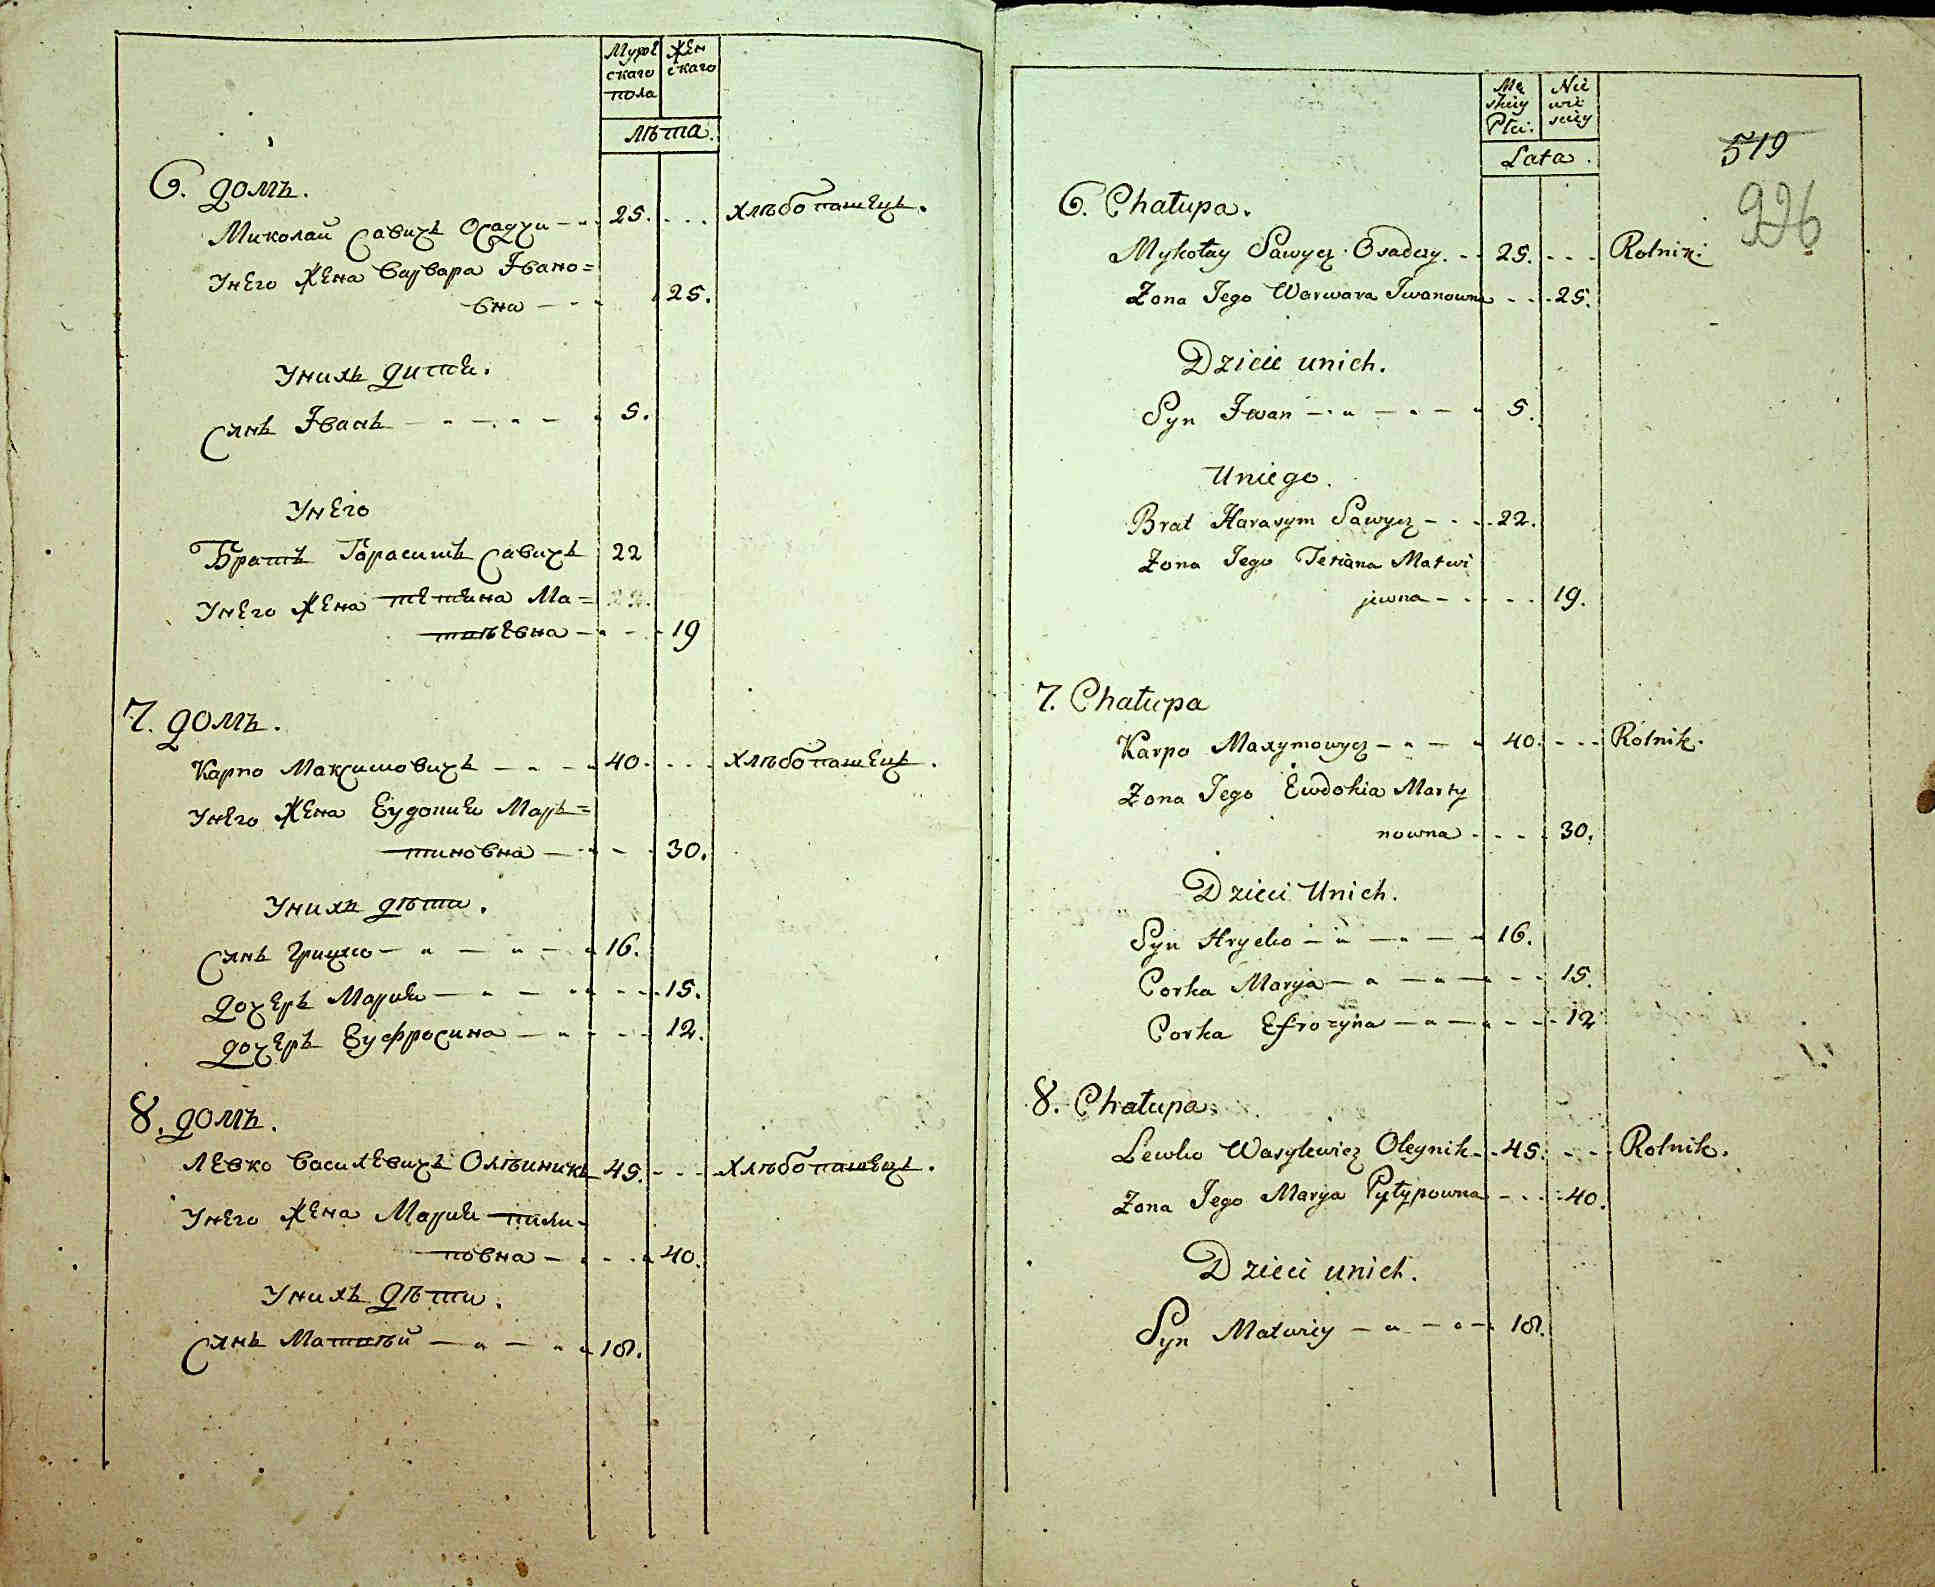 Муже
скаго
пола
Жен
скаго
лѣта.
6. домъ.
Миколай Савичъ Осадчи 25. хлѣбопашецъ.
Унего Жена Варвара Івано=
вна 25.
Унихъ дити.
Сынъ Іванъ 5.
Унего
Братъ Гарасимъ Савичъ 22
Унего Жена тетяна Ма=
твѣевна 19
7. домъ.
Карпо Максимовичъ 40. хлѣбопашецъ.
Унего Жена Еудокия Марь=
тиновна 30.
Унихъ дѣти.
Сынъ Грицко 16.
дочеръ Мария 15.
дочеръ Еуфросина 12.
8. домъ.
Левко Василевичъ Олѣиникъ 45. хлѣбопашецъ.
Унего Жена Мария пили-
повна 40.
Унихъ дѣти.
Сынъ Матвѣй 18.
Mę
skiey
Płci.
Nie
wie
sciey
Lata.
519
926
6. Chałupa.
Mykołay Sawycz Osadczy. 25. Rolnik.
Zona Jego Warwara Iwanowna 25.
Dzieie unich.
Syn Iwan 5.
Uniego.
Brat Harasym Sawycz 22.
Zona Jego Tetiana Matwi
jewna 19.
7. Chałupa
Karpo Maxymowycz 40. Rolnik.
Zona Jego Ewdokia Marty
nowna 30.
Dzieci Unich.
Syn Hrycko 16.
Corka Marya 15.
Corka Efrozyna 12
8. Chałupa
Lewko Wasylewicz Oleynik 45. Rolnik.
Zona Jego Marya Pyłypowna 40.
Dzieci unich.
Syn Matwiy 18.